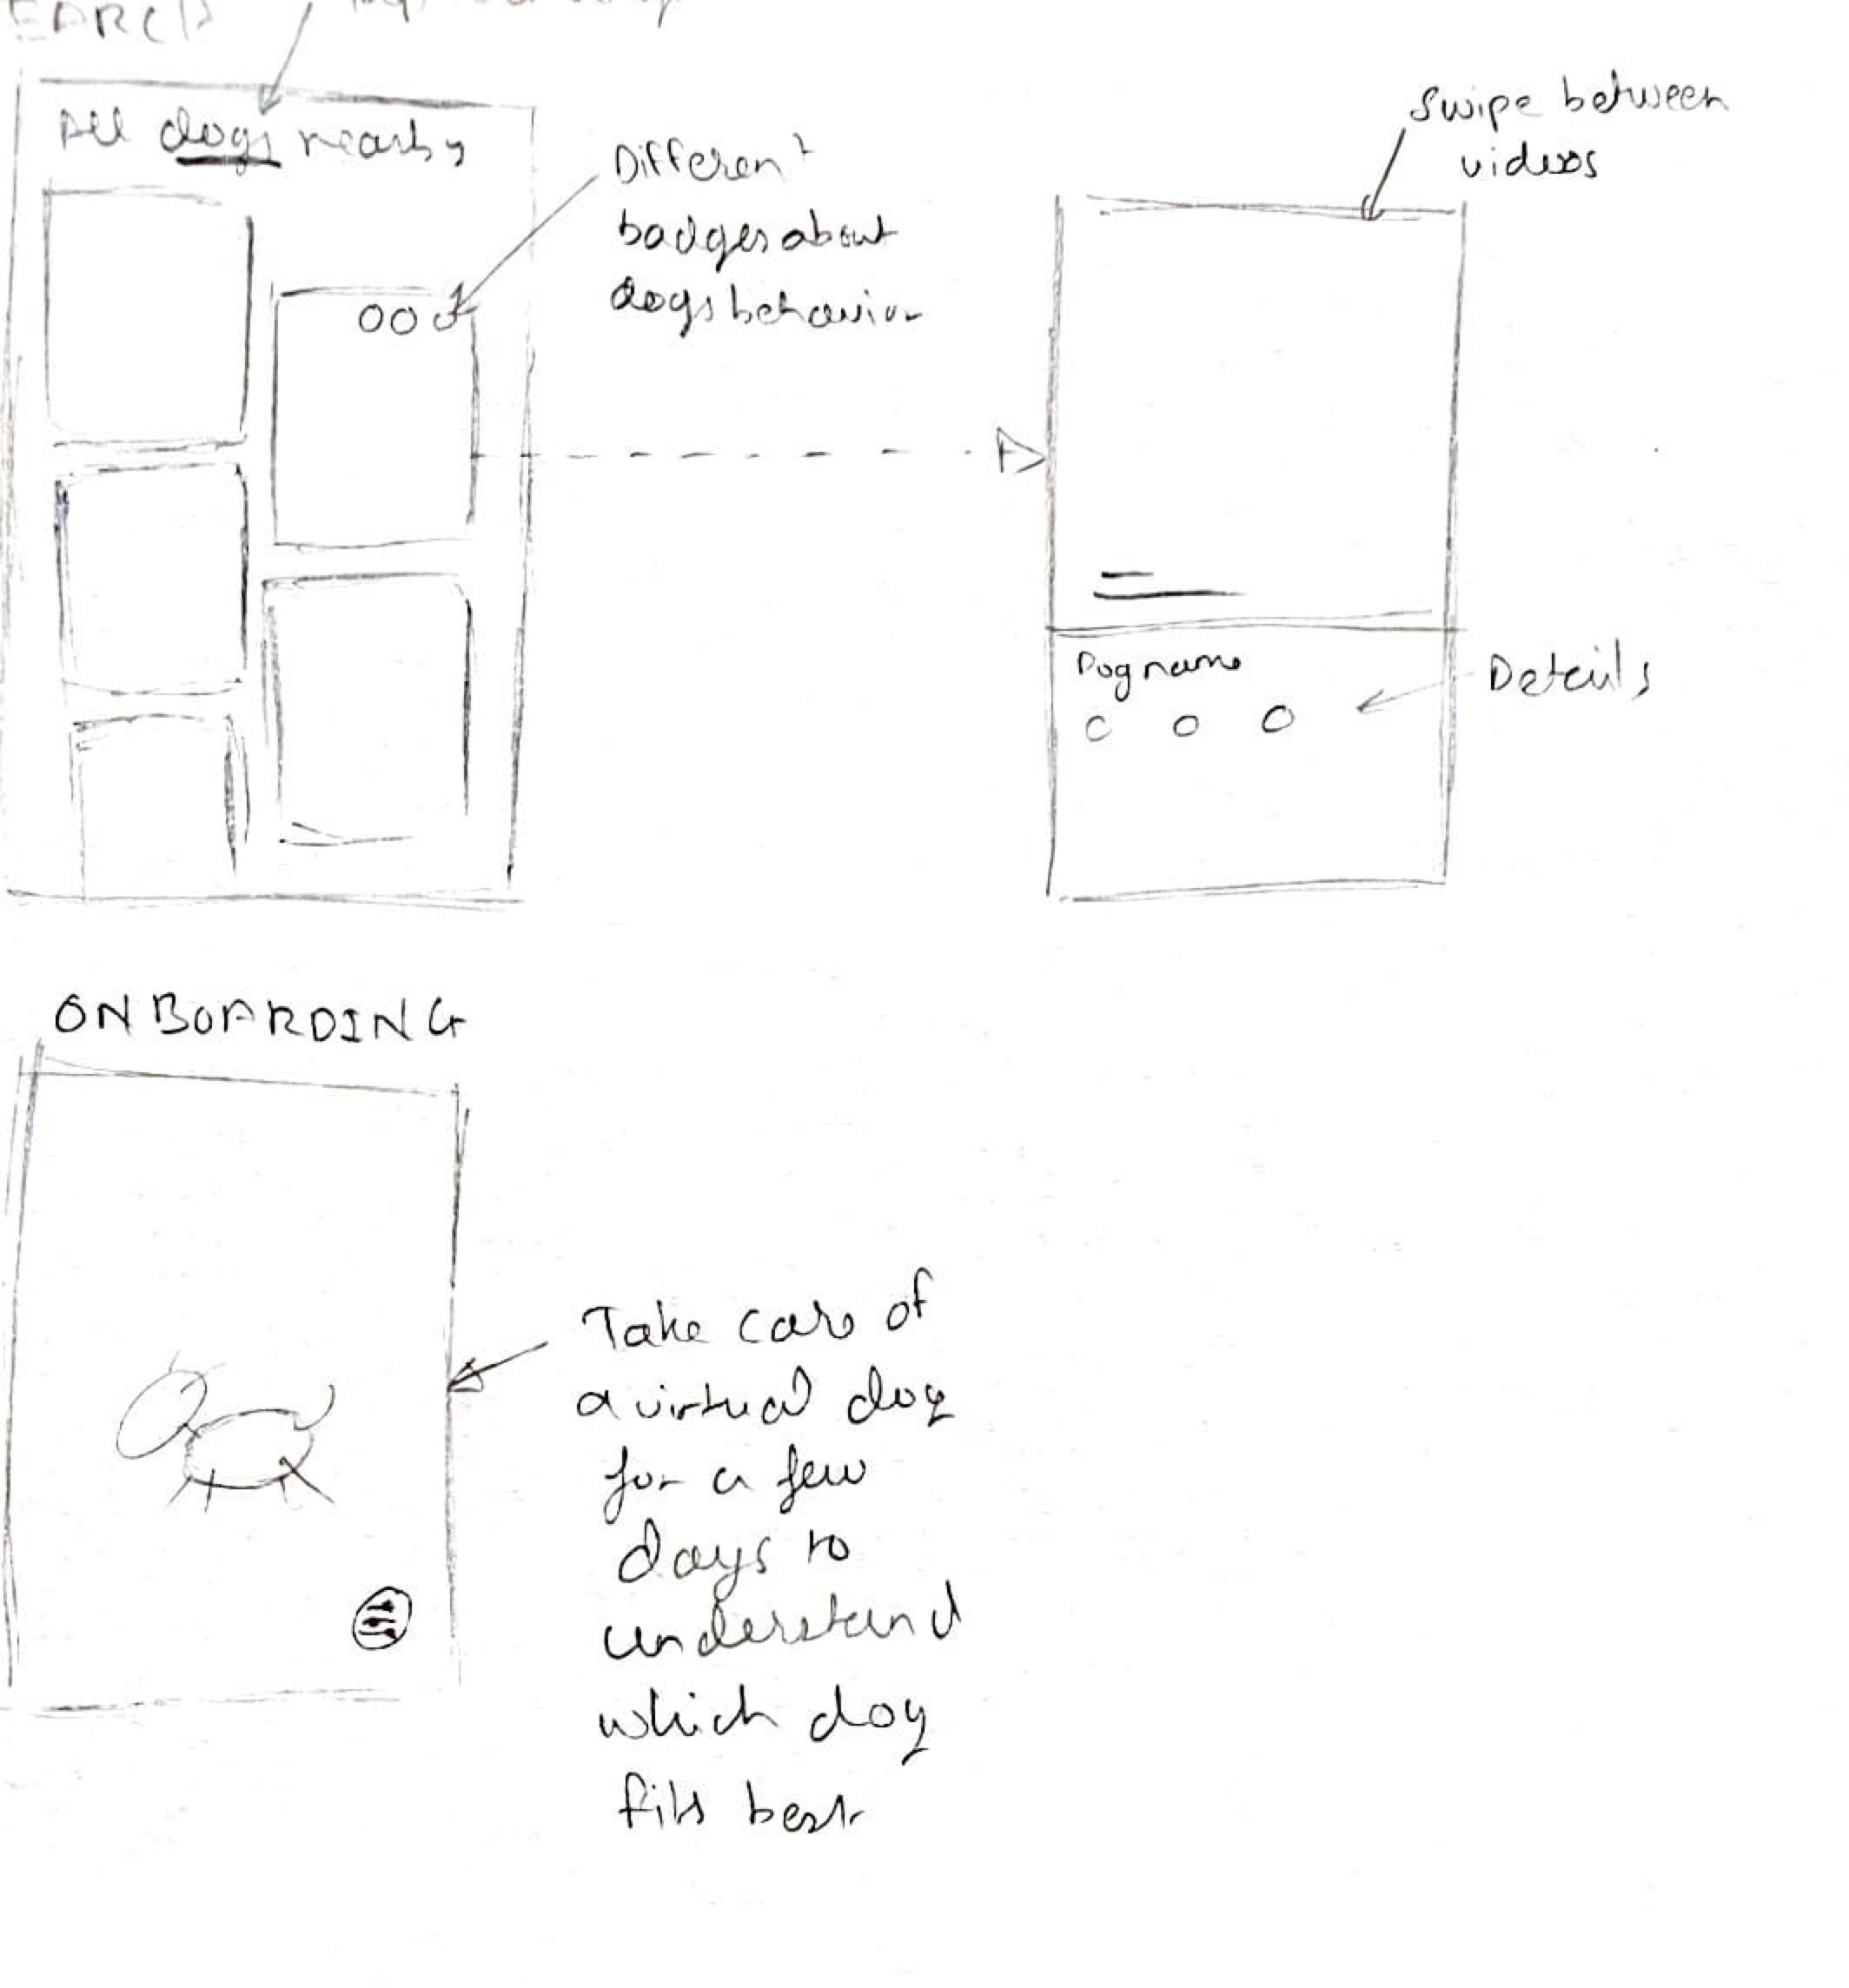 EARCH
All dogs nearby
Different
badges about
dogs behavior
Swipe between
videos
Dog name
Details
ONBOARDING
Take care of
a virtual dog
for a few
days to
understand
which dog
fits best